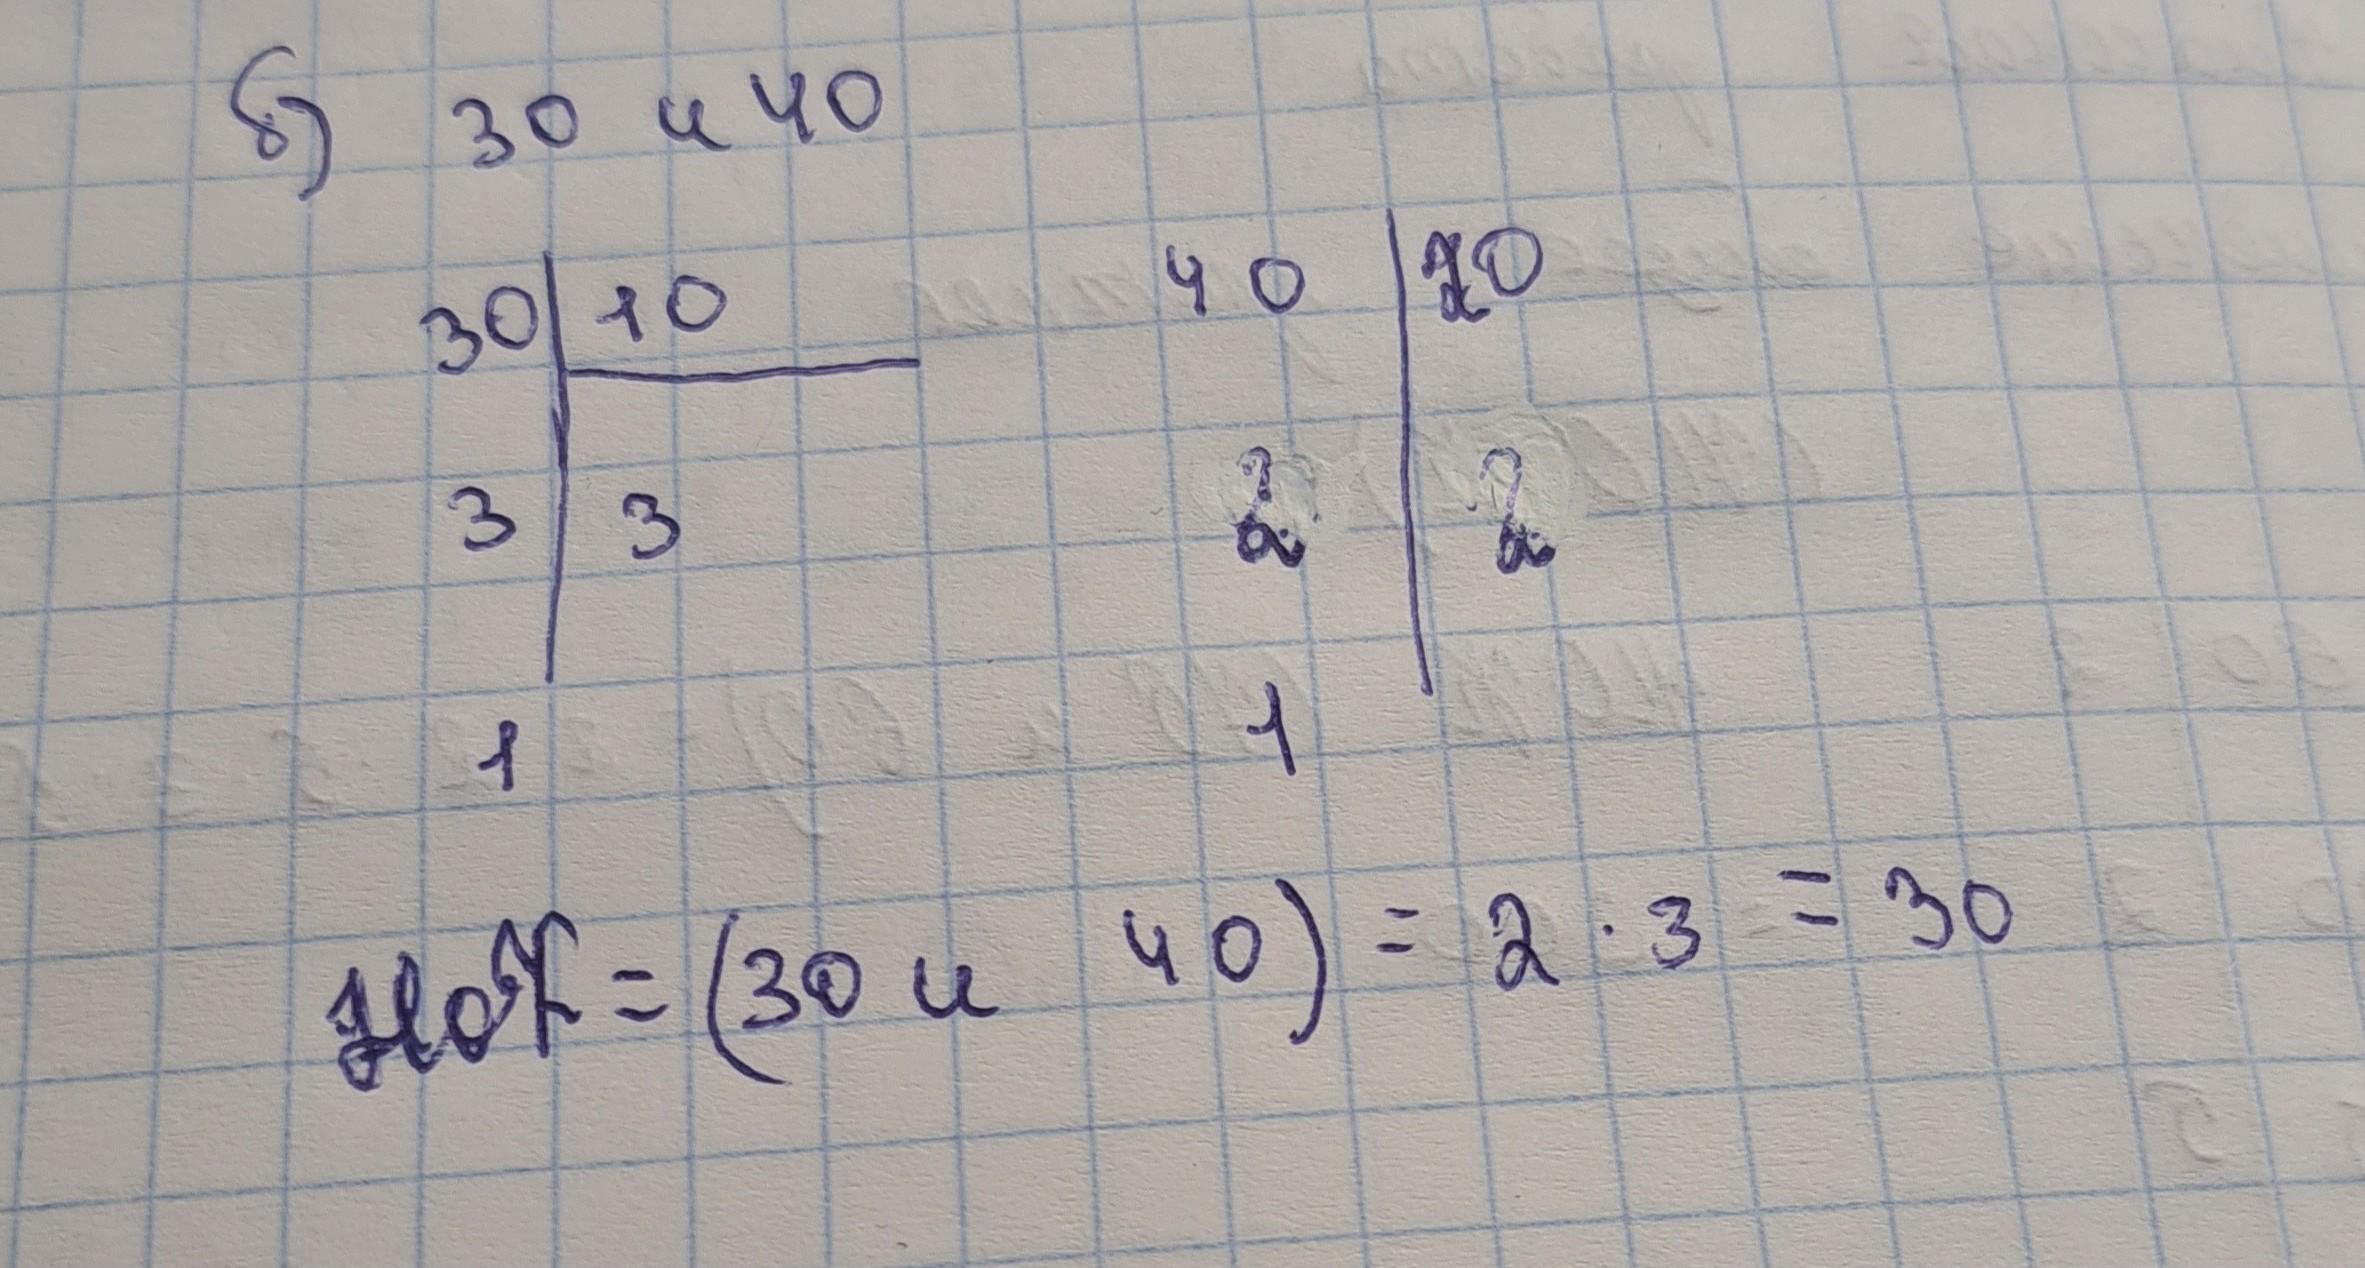 б) 30 и 40
30 | 10 40 | 20
3 | 3 2 | 2
1 1
НОК = (30 и 40) = 2 · 3 = 30